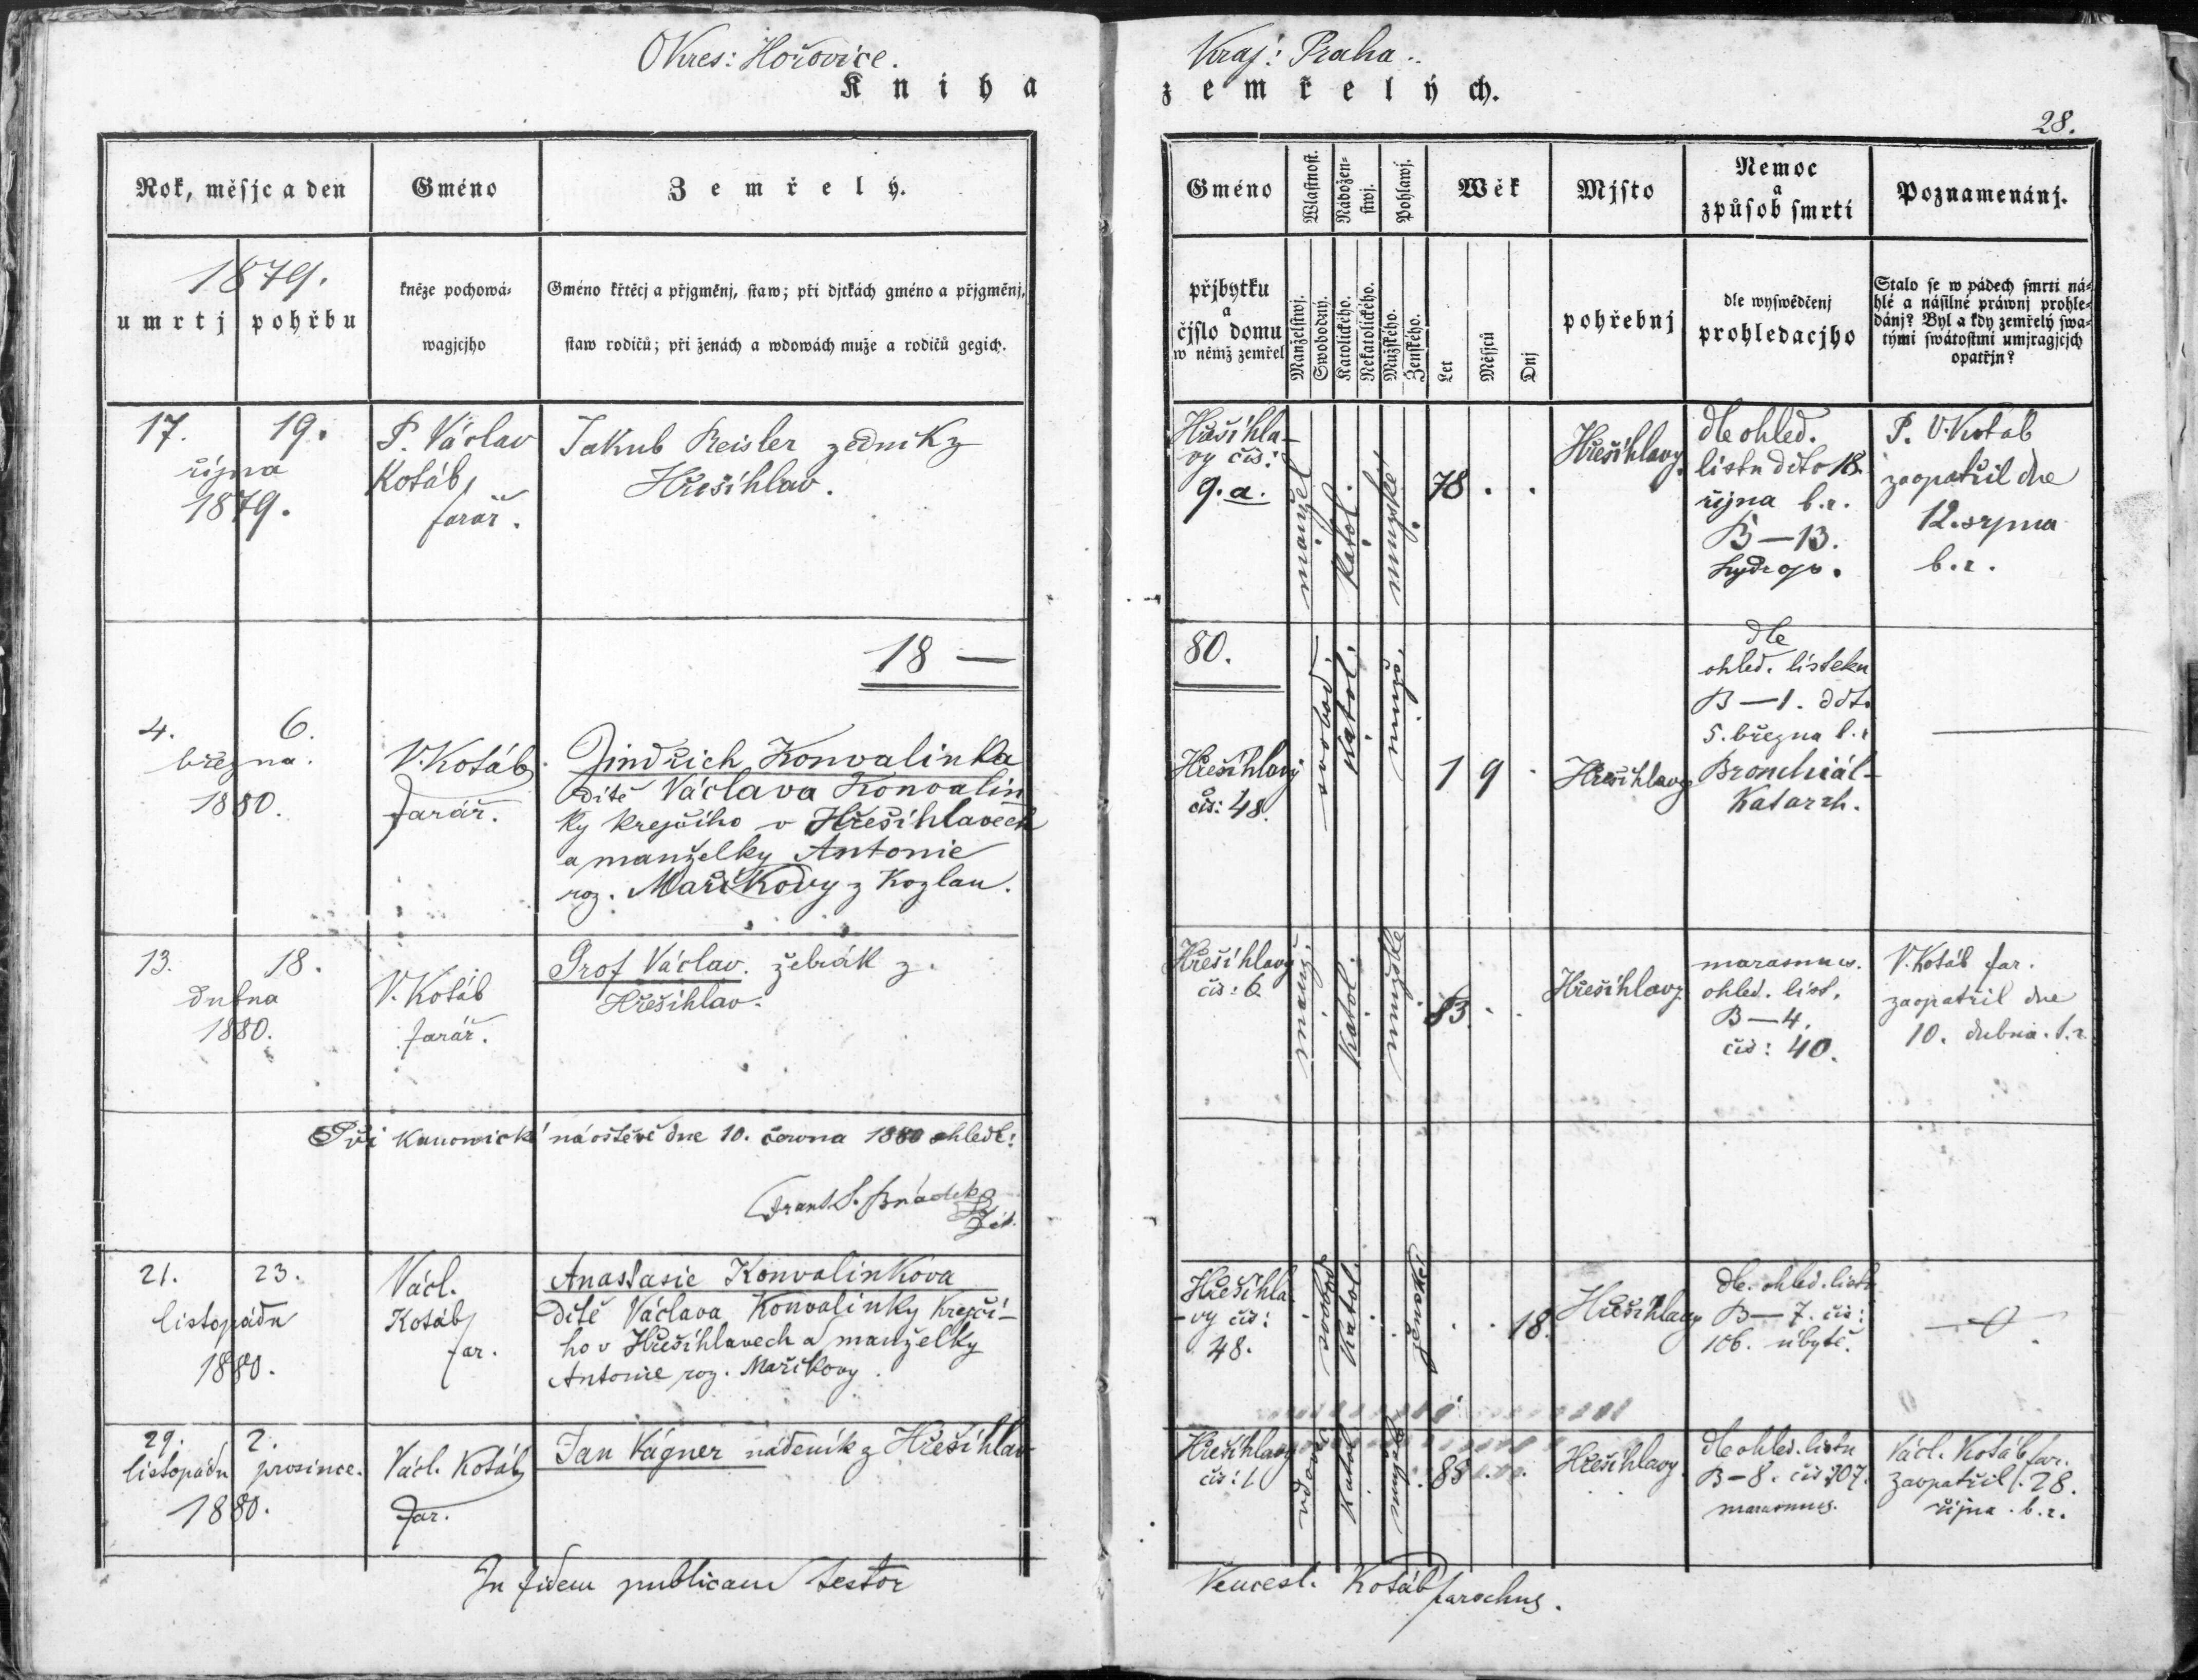 Okres: Hořovice.
Kniha
Rok, měsjc a den
Gméno
Zemřelý.
1879.
umrtj
pohřbu
kněze pochowá-
wagjcjho
Gméno křtěcj a přjgměnj, staw; při djtkách gméno a přjgměnj,
staw rodičů; při ženách a wdowách muže a rodičů gegich.
17. 19.
října
1879.
P. Václav
Kotáb,
farář.
Jakub Reisler zedník z
Hřešihlav.
18 —
4. 6.
března.
1880.
V. Kotáb
farář.
Jindřich Konvalinka
dítě Václava Konvalin
ky krejčího v Hřešihlavech
a manželky Antonie
roz. Maříkovy z Kozlan.
13. 18.
dubna
1880.
V. Kotáb
farář.
Prof Václav. žebrák z
Hřešihlav.
Při kanonické náoštěvě dne 10. června 1880 ohledl:
Frant. S.
21. 23.
listopadu
1880.
Václ.
Kotáb
far.
Anastasie Konvalinkova
dítě Václava Konvalinky krejčí-
ho v Hřešihlavech a manželky
Antonie roz. Maříkovy.
29. 2.
listopadu prosince.
1880.
Václ. Kotáb
far.
Jan Vágner nádeník z Hřešihlav
In fidem publicam testor
Kraj: Praha..
zemřelých.
28.
Gméno
Wlastnost.
Nábožen-
stwj.
Pohlawj.
Wěk
Mjsto
Nemoc
a
způsob smrti
Poznamenánj.
přjbytku
a
čjslo domu
w němž zemřel
Manželstwj.
Swobodný.
Katolického.
Nekatolického.
Mužského.
Ženského.
Let
Měsjců
Dnj
pohřebnj
dle wyswědčenj
prohledacjho
Stalo se w pádech smrti ná-
hlé a násilné práwnj prohle-
dánj? Byl a kdy zemřelý swa-
tými swátostmi umjragjcjch
opatřjn?
Hřešihla-
vy čís:
9.a.
manžel
katol.
mužské
78 . .
Hřešihlavy.
dle ohled.
listu dito 18.
října b.r.
B — 13.
hydrops.
P. V. Kotáb
zaopatřil dne
12. srpna
b.r.
80.
Hřešihlavy
čís: 48.
svobod.
katol.
mužs.
1 9 .
Hřešihlavy
dle
ohled. lísteku
B — 1. ddt.
5. března b.r
Bronchiál-
Katarrh.
Hřešihlavy
čís: 6
manž.
katol.
mužské
83. . .
Hřešihlavy.
marasmus.
ohled. list.
B — 4.
čís: 40.
V. Kotáb far.
zaopatřil dne
10. dubna. b.r.
Hřešihla
-vy čís:
48.
svobod
katol.
ženské
. . 18.
Hřešihlavy
dle. ohled. listu
B — 7. čís:
106. úbytě.
Hřešihlavy
čís: 1.
vdovec
katol
mužské
88 . .
Hřešihlavy.
dle ohled. listu
B – 8. čís 107.
marasmus.
Václ. Kotáb far.
zaopatřil 28.
října. b.r.
Vencesl. Kotáb parochus.